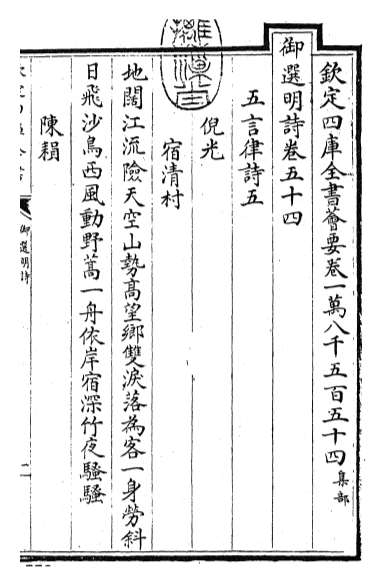 欽定四庫全書薈要卷一萬八千五百五十四 集部
御選明詩卷五十四
五言律詩五
倪光
宿清村
地闊江流險天空山勢高望鄉雙淚落為客一身勞斜
日飛沙鳥西風動野蒿一舟依岸宿深竹夜騷騷
陳䪷
御選明詩